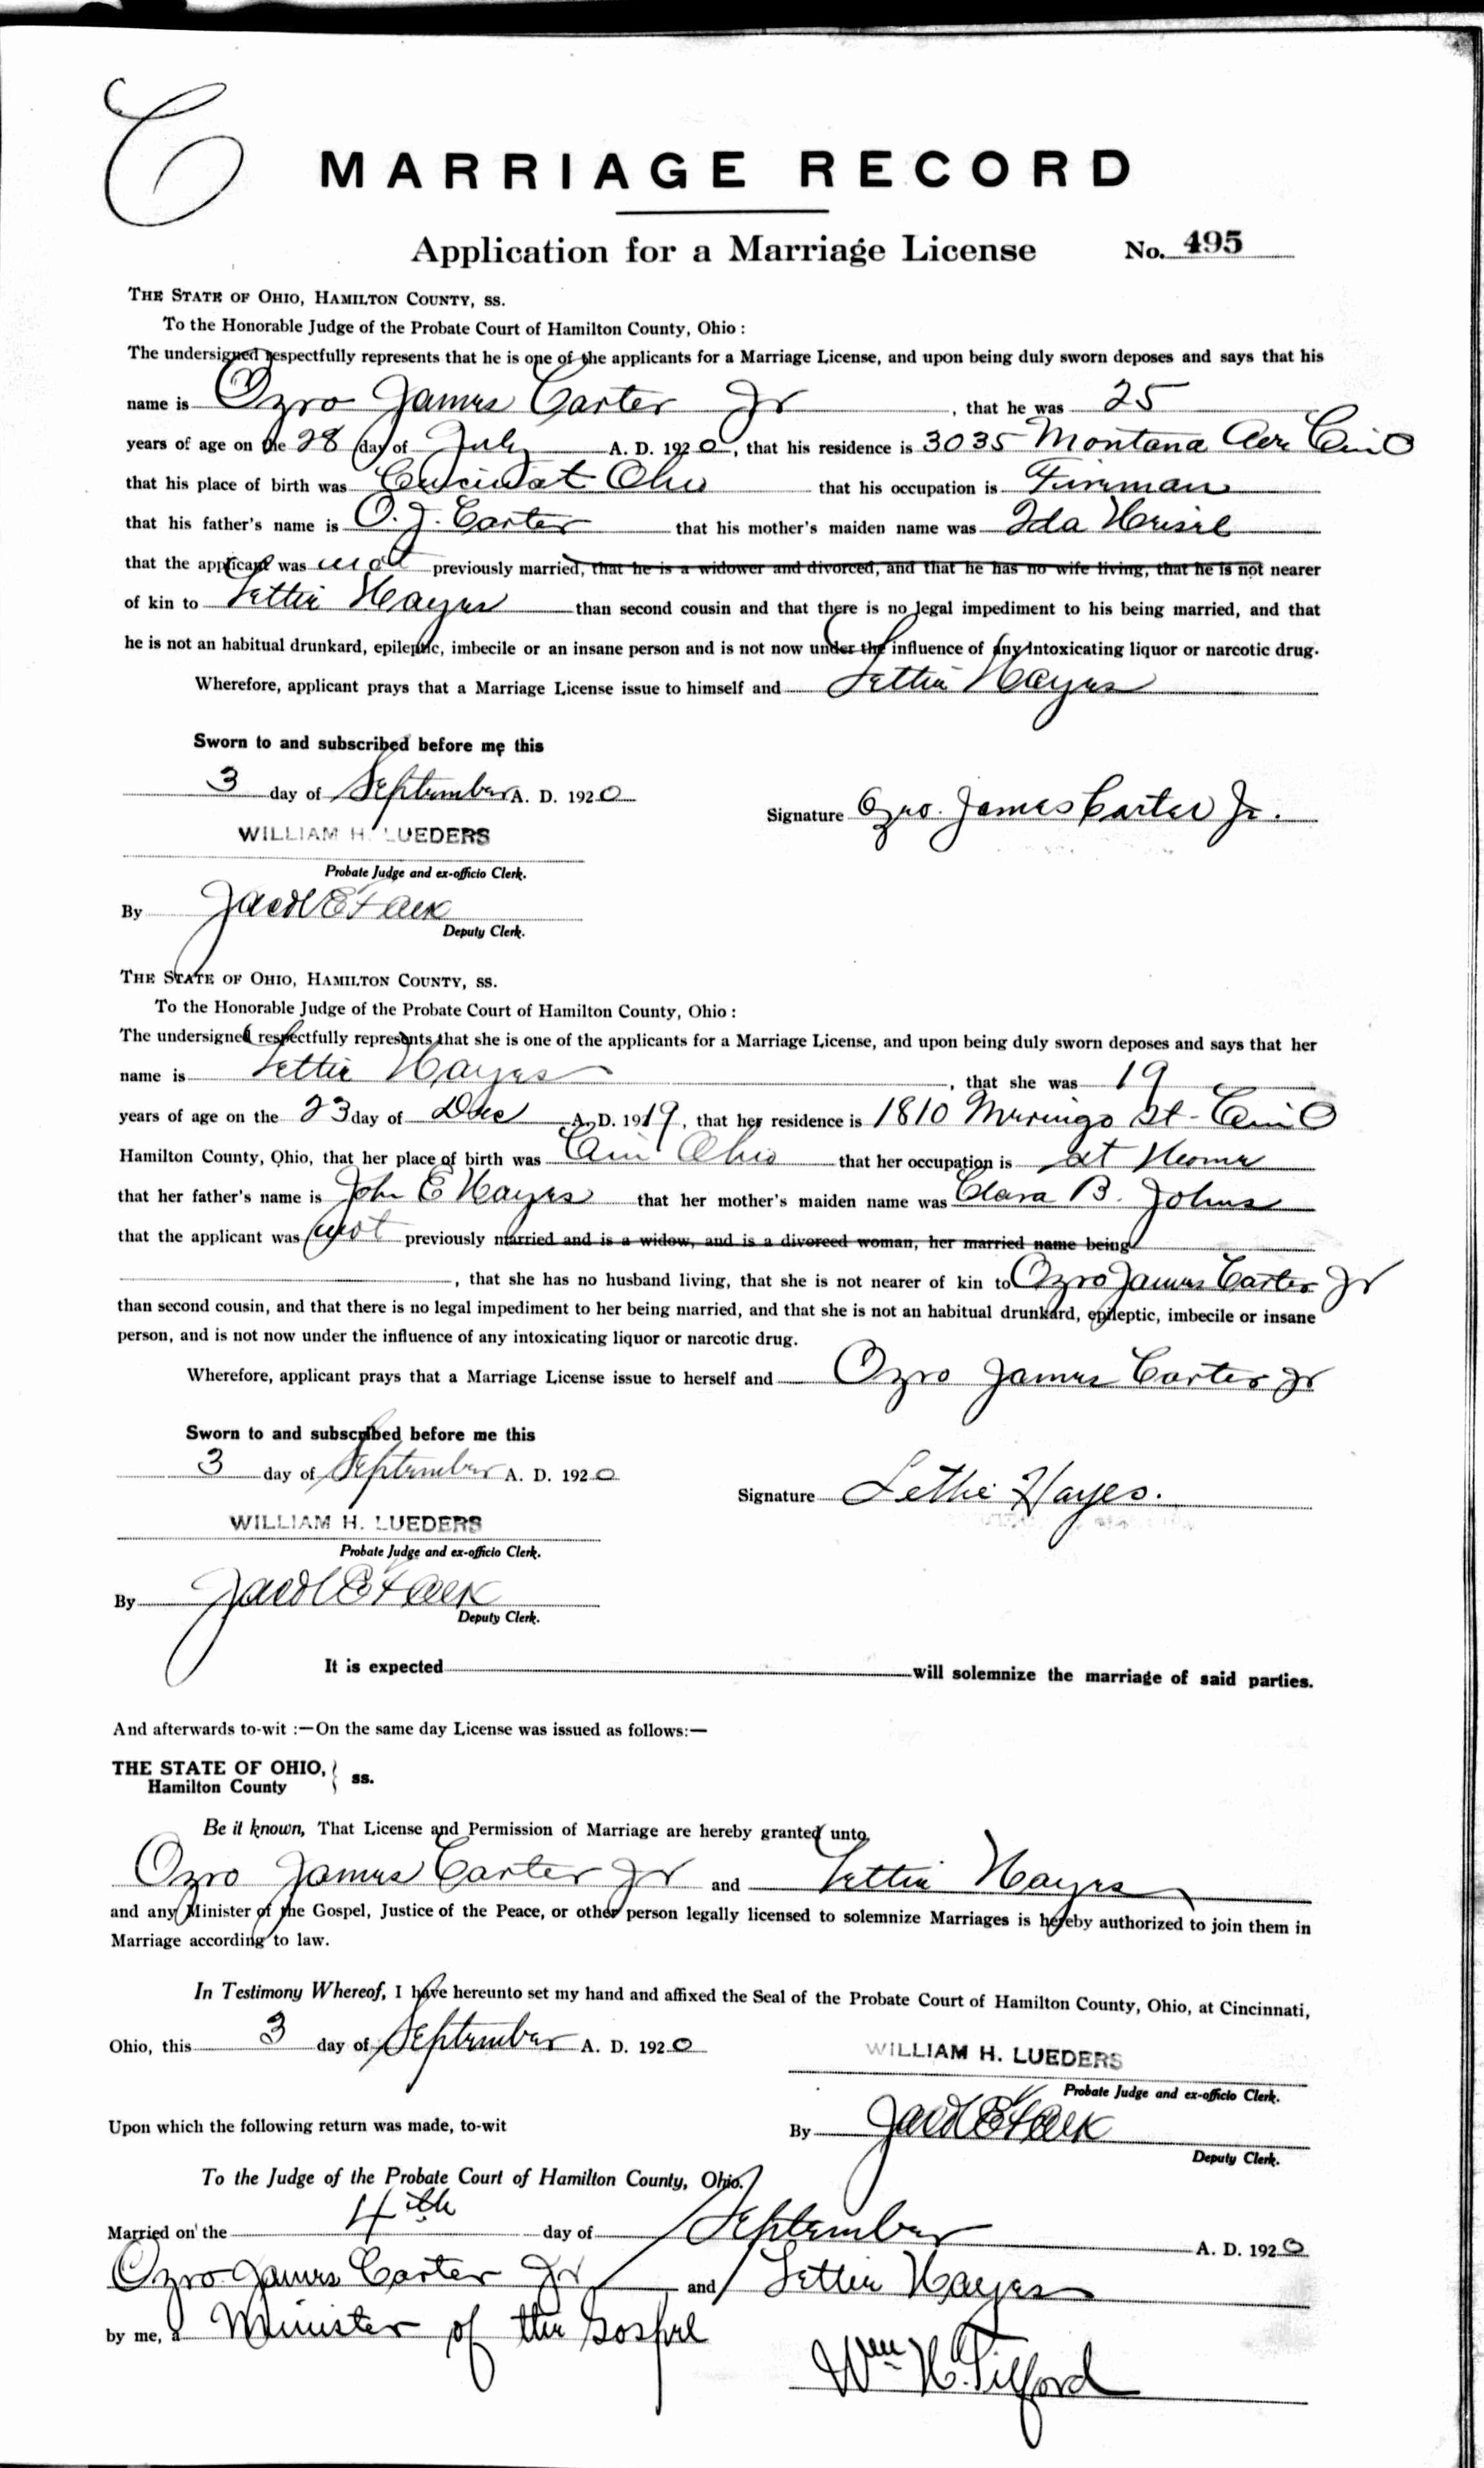 C
MARRIAGE RECORD
Application for a Marriage License No. 495
THE STATE OF OHIO, HAMILTON COUNTY, SS.
To the Honorable Judge of the Probate Court of Hamilton County, Ohio :
The undersigned respectfully represents that he is one of the applicants for a Marriage License, and upon being duly sworn deposes and says that his
name is Ozro James Carter Jr , that he was 25
years of age on the 28 day of July A. D. 1920, that his residence is 3035 Montana Ave Cin O
that his place of birth was Cincinnati Ohio that his occupation is Fireman
that his father's name is O. J. Carter that his mother's maiden name was Ida
that the applicant was not previously married, that he is a widower and divorced, and that he has no wife living, that he is not nearer
of kin to Lettie Hayes than second cousin and that there is no legal impediment to his being married, and that
he is not an habitual drunkard, epileptic, imbecile or an insane person and is not now under the influence of any intoxicating liquor or narcotic drug.
Wherefore, applicant prays that a Marriage License issue to himself and Lettie Hayes
Sworn to and subscribed before me this
3 day of September A. D. 1920
Signature Ozro. James Carter Jr.
WILLIAM H. LUEDERS
Probate Judge and ex-officio Clerk.
By
Deputy Clerk.
THE STATE OF OHIO, HAMILTON COUNTY, SS.
To the Honorable Judge of the Probate Court of Hamilton County, Ohio :
The undersigned respectfully represents that she is one of the applicants for a Marriage License, and upon being duly sworn deposes and says that her
name is Lettie Hayes , that she was 19
years of age on the 23 day of Dec A. D. 1919, that her residence is 1810 St - Cin O
Hamilton County, Ohio, that her place of birth was Cin Ohio that her occupation is at Home
that her father's name is John E Hayes that her mother's maiden name was Clara B. Johns
that the applicant was not previously married and is a widow, and is a divorced woman, her married name being
, that she has no husband living, that she is not nearer of kin to Ozro James Carter Jr
than second cousin, and that there is no legal impediment to her being married, and that she is not an habitual drunkard, epileptic, imbecile or insane
person, and is not now under the influence of any intoxicating liquor or narcotic drug.
Wherefore, applicant prays that a Marriage License issue to herself and Ozro James Carter Jr
Sworn to and subscribed before me this
3 day of September A. D. 1920
Signature Lettie Hayes.
WILLIAM H. LUEDERS
Probate Judge and ex-officio Clerk.
By
Deputy Clerk.
It is expected will solemnize the marriage of said parties.
And afterwards to-wit :—On the same day License was issued as follows:—
THE STATE OF OHIO, } ss.
Hamilton County
Be it known, That License and Permission of Marriage are hereby granted unto
Ozro James Carter Jr and Lettie Hayes
and any Minister of the Gospel, Justice of the Peace, or other person legally licensed to solemnize Marriages is hereby authorized to join them in
Marriage according to law.
In Testimony Whereof, I have hereunto set my hand and affixed the Seal of the Probate Court of Hamilton County, Ohio, at Cincinnati,
Ohio, this 3 day of September A. D. 1920
WILLIAM H. LUEDERS
Probate Judge and ex-officio Clerk.
Upon which the following return was made, to-wit
By
Deputy Clerk.
To the Judge of the Probate Court of Hamilton County, Ohio.
Married on the 4th day of September A. D. 1920
Ozro James Carter Jr and Lettie Hayes
by me, a Minister of the Gospel
Wm H. Tilford